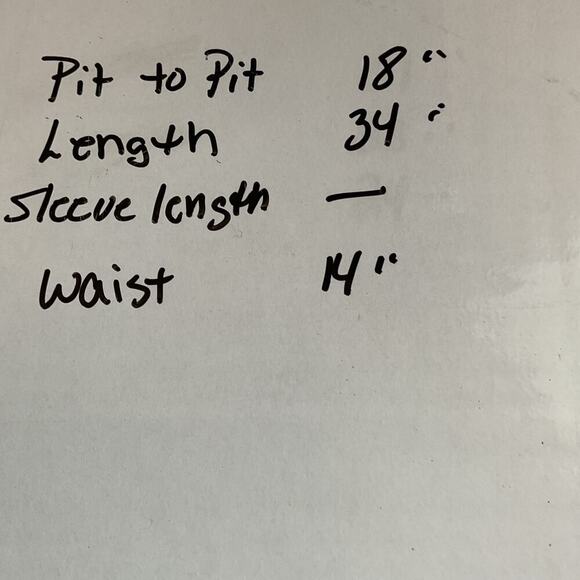 Pit to Pit 18"
Length 34"
Sleeve length —
Waist 14"